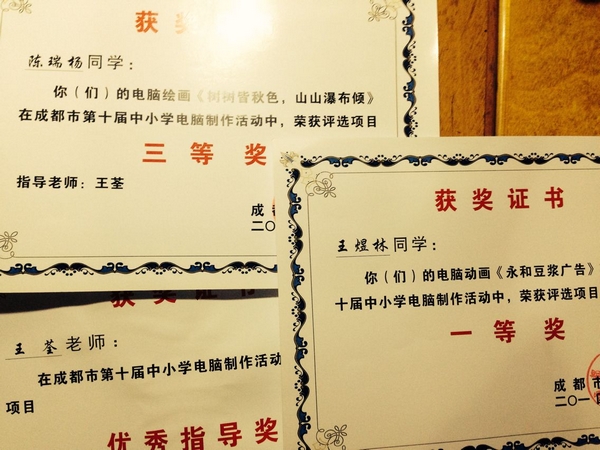 获奖
陈瑞杨同学：
你（们）的电脑绘画《树树皆秋色，山山瀑布倾》
在成都市第十届中小学电脑制作活动中，荣获评选项目
三等奖
指导老师：王荃
成都
二〇
获奖证书
王煜林同学：
你（们）的电脑动画《永和豆浆广告》
十届中小学电脑制作活动中，荣获评选项
一等奖
成都市
二〇一四
获奖证书
王荃老师：
在成都市第十届中小学电脑制作活动
项目
优秀指导奖